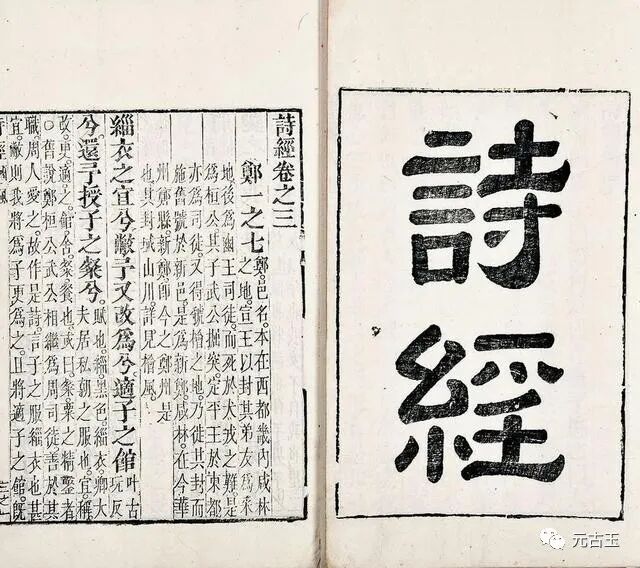 詩經
詩經卷之三
鄭一之七
鄭。邑名。本在西都畿內咸林
之地。宣王以封其弟友為采
地後為幽王司徒。而死於犬戎之難。是
為桓公其子武公掘突定平王於東都
亦為司徒。又得虢檜之地。乃徙其封而
施舊號於新邑。是為新鄭。咸林在今華
州鄭縣。新鄭即今之鄭州是
也。其封域山川詳見檜風。
緇衣之宜兮敝予又改為兮適子之館叶古玩反
兮還予授子之粲兮。賦也。緇黑色。緇衣。卿大
夫居私朝之服也。宜。稱
改。更。適之館舍粲餐也。或曰粲粟之精鑿者
○舊說鄭桓公武公相繼為周司徒善於其
職。周人愛之故作是詩。言子之服緇衣也甚
宜。敝則我將為子更為之。且將適子之館。既
元古玉